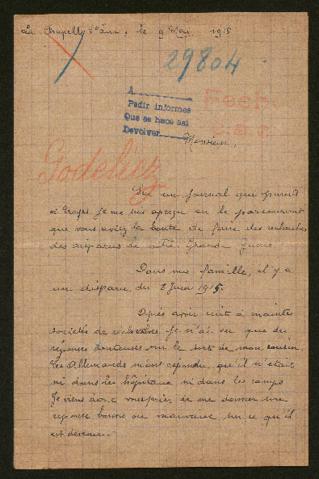 La Chapelle St Luc, le 9 Mai 1918
29804
A
Pedir informes
Que se hace así
Devolver
Fech
Godeliez
Monsieur,
un journal qui
à Troyes je me suis aperçu en le parcourant
que vous aviez la bonté de faire des recherches
des disparus de cette Grande Guerre
Dans ma famille, il y a
un disparu du 2 Juin 1915.
Après avoir écrit à mainte
société de je n'ai eu que des
réponses douteuses sur le sort de mon cousin
Les Allemands m'ont répondu, qu'il n'était
ni dans les hôpitaux ni dans les camps
Je viens donc vous prier de me donner une
réponse bonne ou mauvaise sur ce qu'il
est devenu.